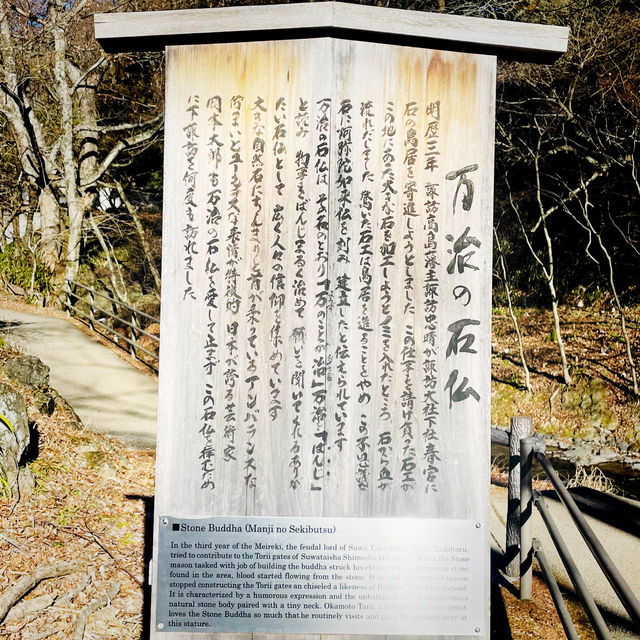 万治の石仏
明歴三年 諏訪高島藩主諏訪忠晴が諏訪大社下社春宮に
石の鳥居を寄進しようとしました この仕事を請け負った石工が
この地にあった大きな石を細工しようとノミを入れたところ 石から血が
流れだしました 驚いた石工は鳥居を造ることをやめ この不思議な
石に阿弥陀如来仏を刻み 建立したと伝えられています
万治の石仏は その名のとおり「万のことが治」万治「ばんじ」
と読み 物事をばんじまるく治めて 願いを聞いてくれるありが
たい石仏として 広く人々の信仰を集めています
大きな自然石にちょんぎり首が乗っているアンバランスな
何ともいえずユーモアな表情が特徴的 日本が誇る芸術家
岡本太郎も万治の石仏を愛して止まず この石仏を拝むため
に下諏訪を何度も訪れました
■Stone Buddha (Manji no Sekibutsu)
In the third year of the Meireki, the feudal lord of Suwa Tadaharu,
tried to contribute to the Torii gates of Suwataisha Shimosha When the Stone
mason tasked with job of building the buddha struck his chisel stone
found in the area, blood started flowing from the stone. It is said mason
stopped constructing the Torii gates an chiseled a likeness of
It is characterized by a humorous expression and the unbalanced enormous
natural stone body paired with a tiny neck. Okamoto Taro, artist,
loves the Stone Buddha so much that he routinely visits and pays here at
this stature.